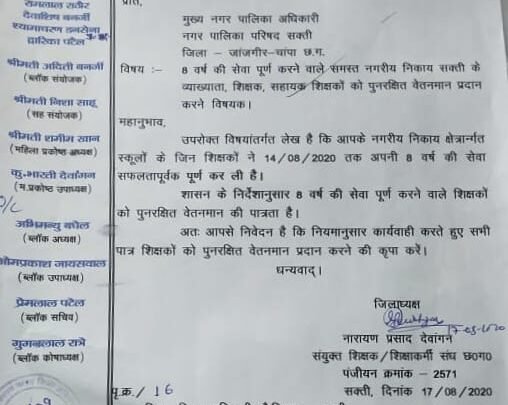 रामलाल राठौर
देवाशिष बनर्जी
श्यामाचरण डनसेना
द्वारिका पटेल
श्रीमती अदिती बनर्जी
(ब्लॉक संयोजक)
श्रीमती निशा साहू
(सह संयोजक)
श्रीमती शमीम खान
(महिला प्रकोष्ठ अध्यक्ष)
कु. भारती देवांगन
(म.प्रकोष्ठ उपाध्यक्ष)
अभिमन्यु बघेल
(ब्लॉक अध्यक्ष)
ओमप्रकाश जायसवाल
(ब्लॉक उपाध्यक्ष)
प्रेमलाल पटेल
(ब्लॉक सचिव)
गुमनलाल रात्रे
(ब्लॉक कोषाध्यक्ष)
प्रति,
मुख्य नगर पालिका अधिकारी
नगर पालिका परिषद सक्ती
जिला – जांजगीर-चांपा छ.ग.
विषय :– 8 वर्ष की सेवा पूर्ण करने वाले समस्त नगरीय निकाय सक्ती के
व्याख्याता, शिक्षक, सहायक शिक्षकों को पुनरक्षित वेतनमान प्रदान
करने विषयक।
महानुभाव,
उपरोक्त विषयांतर्गत लेख है कि आपके नगरीय निकाय क्षेत्रार्न्गत
स्कूलों के जिन शिक्षकों ने 14/08/2020 तक अपनी 8 वर्ष की सेवा
सफलतापूर्वक पूर्ण कर ली है।
शासन के निर्देशानुसार 8 वर्ष की सेवा पूर्ण करने वाले शिक्षकों
को पुनरक्षित वेतनमान की पात्रता है।
अतः आपसे निवेदन है कि नियमानुसार कार्यवाही करते हुए सभी
पात्र शिक्षकों को पुनरक्षित वेतनमान प्रदान करने की कृपा करें।
धन्यवाद।
जिलाध्यक्ष
नारायण प्रसाद देवांगन
संयुक्त शिक्षक / शिक्षाकर्मी संघ छ0ग0
पंजीयन क्रमांक – 2571
सक्ती, दिनांक 17/08/2020
पृ.क्र. / 16